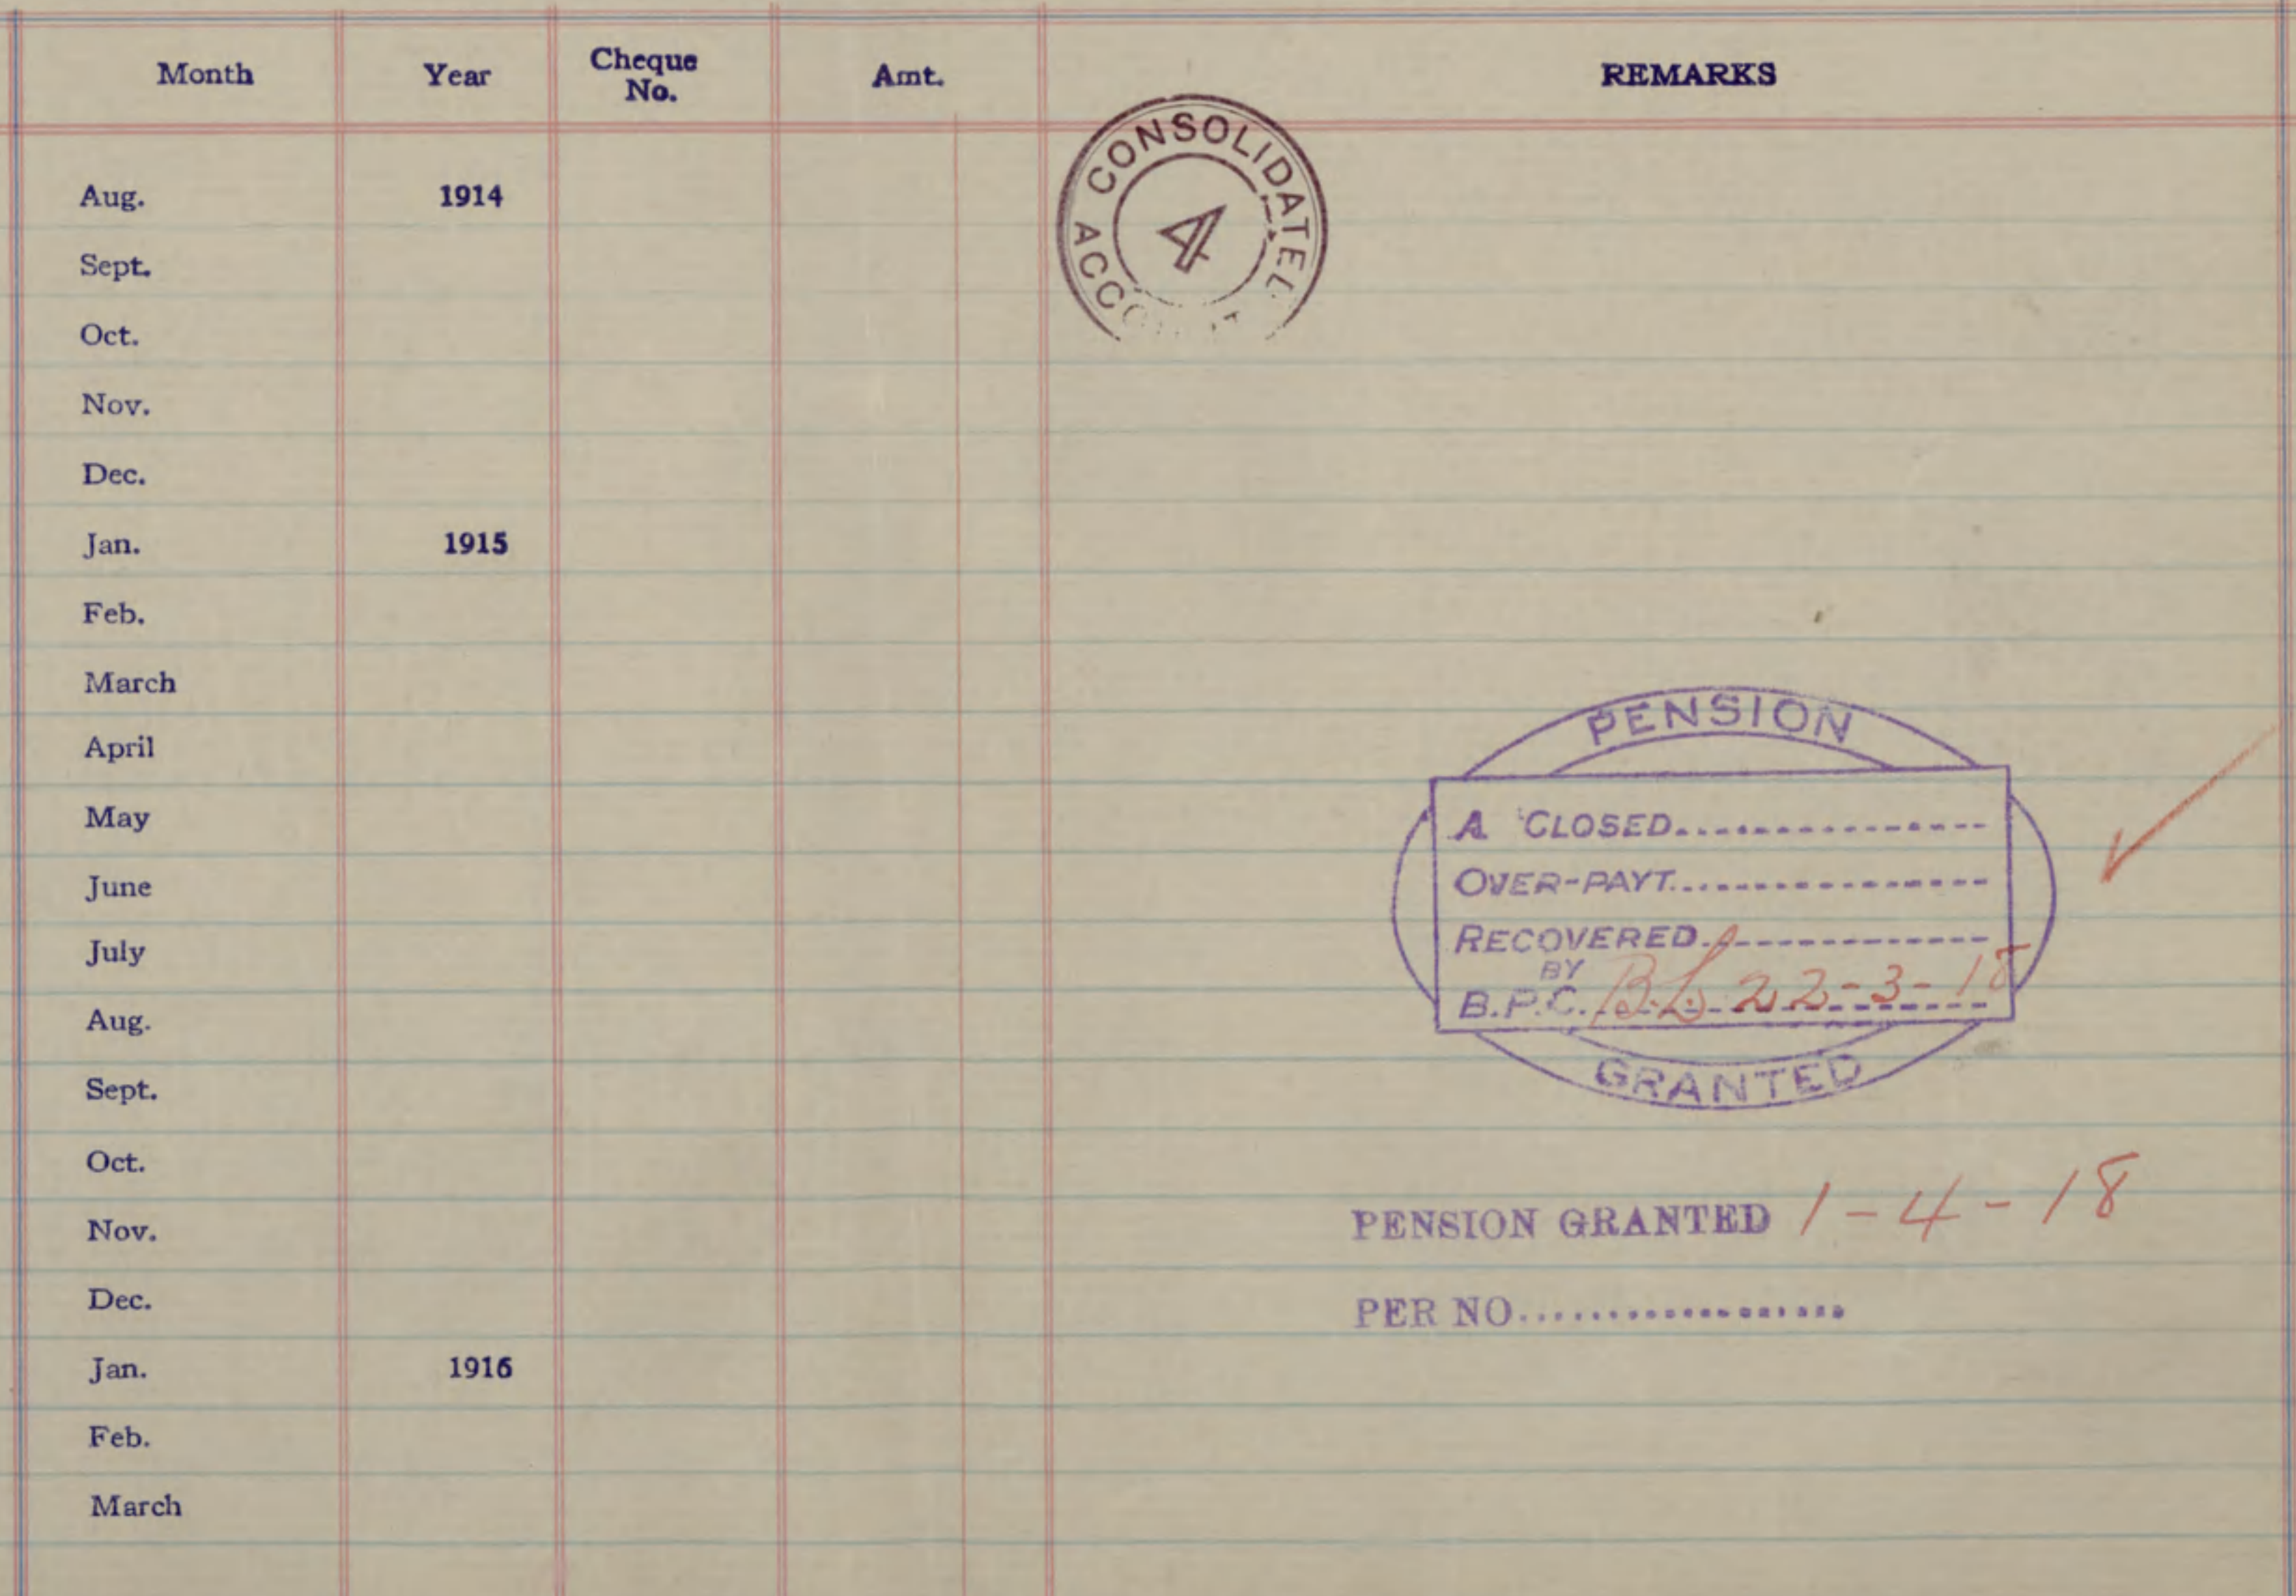 Month Year Cheque No. Amt. REMARKS
CONSOLIDATED
4
Aug. 1914
Sept.
Oct.
Nov.
Dec.
Jan. 1915
Feb.
March
April
May
June
July
Aug.
Sept.
Oct.
Nov.
Dec.
Jan. 1916
Feb.
March
PENSION
A CLOSED
OVER-PAYT.
RECOVERED
BY
B.P.C. B.L. 22-3-18
GRANTED
PENSION GRANTED 1-4-18
PER NO